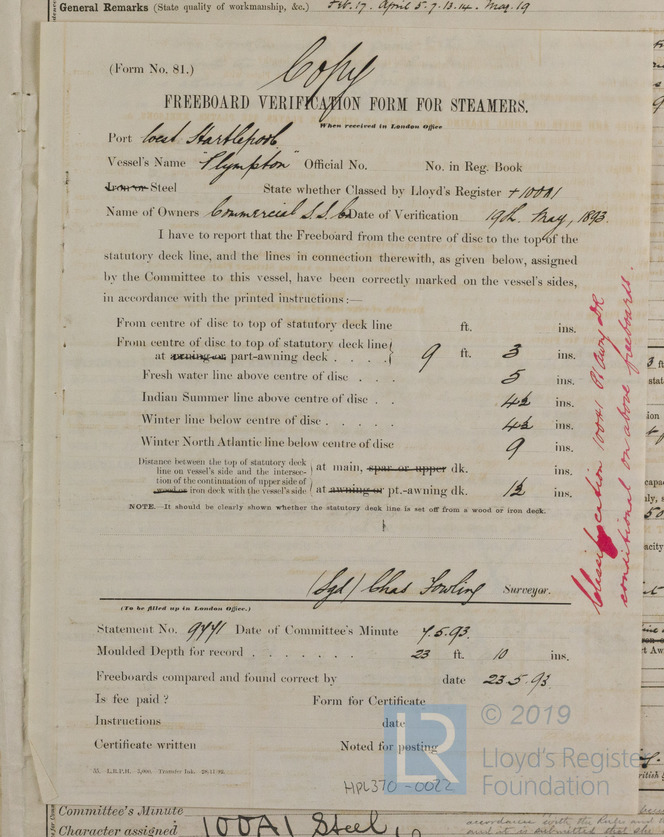 General Remarks (State quality of workmanship, &c.) Feb. 17. April 5. 7. 13. 14. May. 19
(Form No. 81.)
Copy
FREEBOARD VERIFICATION FORM FOR STEAMERS.
When received in London Office
Port West Hartlepool
Vessel's Name "Plympton" Official No. No. in Reg. Book
Iron or Steel State whether Classed by Lloyd's Register +100A1
Name of Owners Commercial S.S. Co Date of Verification 19th May, 1893.
I have to report that the Freeboard from the centre of disc to the top of the
statutory deck line, and the lines in connection therewith, as given below, assigned
by the Committee to this vessel, have been correctly marked on the vessel's sides,
in accordance with the printed instructions:—
From centre of disc to top of statutory deck line ft. ins.
From centre of disc to top of statutory deck line
at awning or part-awning deck . . . . 9 ft. 3 ins.
Fresh water line above centre of disc . . . 5 ins.
Indian Summer line above centre of disc . . 4½ ins.
Winter line below centre of disc . . . . . 4½ ins.
Winter North Atlantic line below centre of disc 9 ins.
Distance between the top of statutory deck
line on vessel's side and the intersec- at main, spar or upper dk. ins.
tion of the continuation of upper side of
wood or iron deck with the vessel's side at awning or pt.-awning dk. 1½ ins.
NOTE.—It should be clearly shown whether the statutory deck line is set off from a wood or iron deck.
Classification 100A1 Pt Awng Dk
conditional on above freeboards.
(Sgd) Chas Fowling Surveyor.
(To be filled up in London Office.)
Statement No. 9771 Date of Committee's Minute 7.5.93.
Moulded Depth for record . . . . . . . 23 ft. 10 ins.
Freeboards compared and found correct by date 23.5.93.
Is fee paid ? Form for Certificate
Instructions date
Certificate written Noted for posting
L.R.P.H. 2,000. Transfer Ink. 28.11.92.
LR © 2019
Lloyd's Register
Foundation
HPL370-0022
Committee's Minute
Character assigned 100A1 Steel